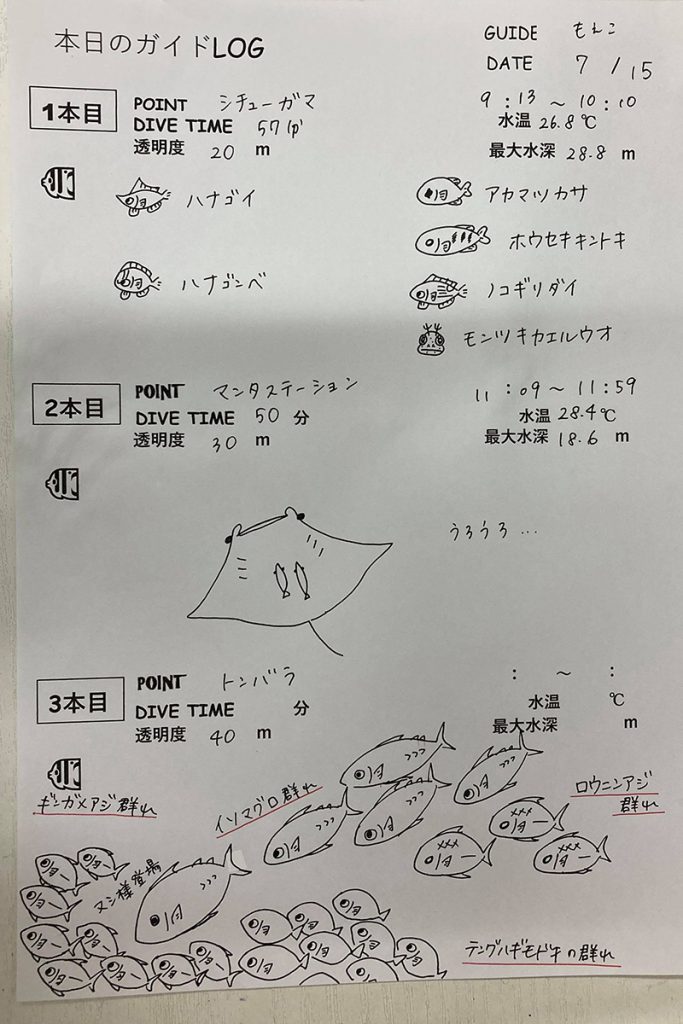 本日のガイドLOG
GUIDE もえこ
DATE 7/15
1本目
POINT シチューガマ
DIVE TIME 57分
透明度 20 m
9:13～10:10
水温 26.8℃
最大水深 28.8 m
ハナゴイ
アカマツカサ
ホウセキキントキ
ハナゴンベ
ノコギリダイ
モンツキカエルウオ
2本目
POINT マンタステーション
DIVE TIME 50 分
透明度 30 m
11:09～11:59
水温 28.4℃
最大水深 18.6 m
うろうろ...
3本目
POINT トンバラ
DIVE TIME 分
透明度 40 m
: ～ :
水温 ℃
最大水深 m
ギンガメアジ群れ
イソマグロ群れ
ロウニンアジ
群れ
ヌシ様登場
テングハギモドキの群れ